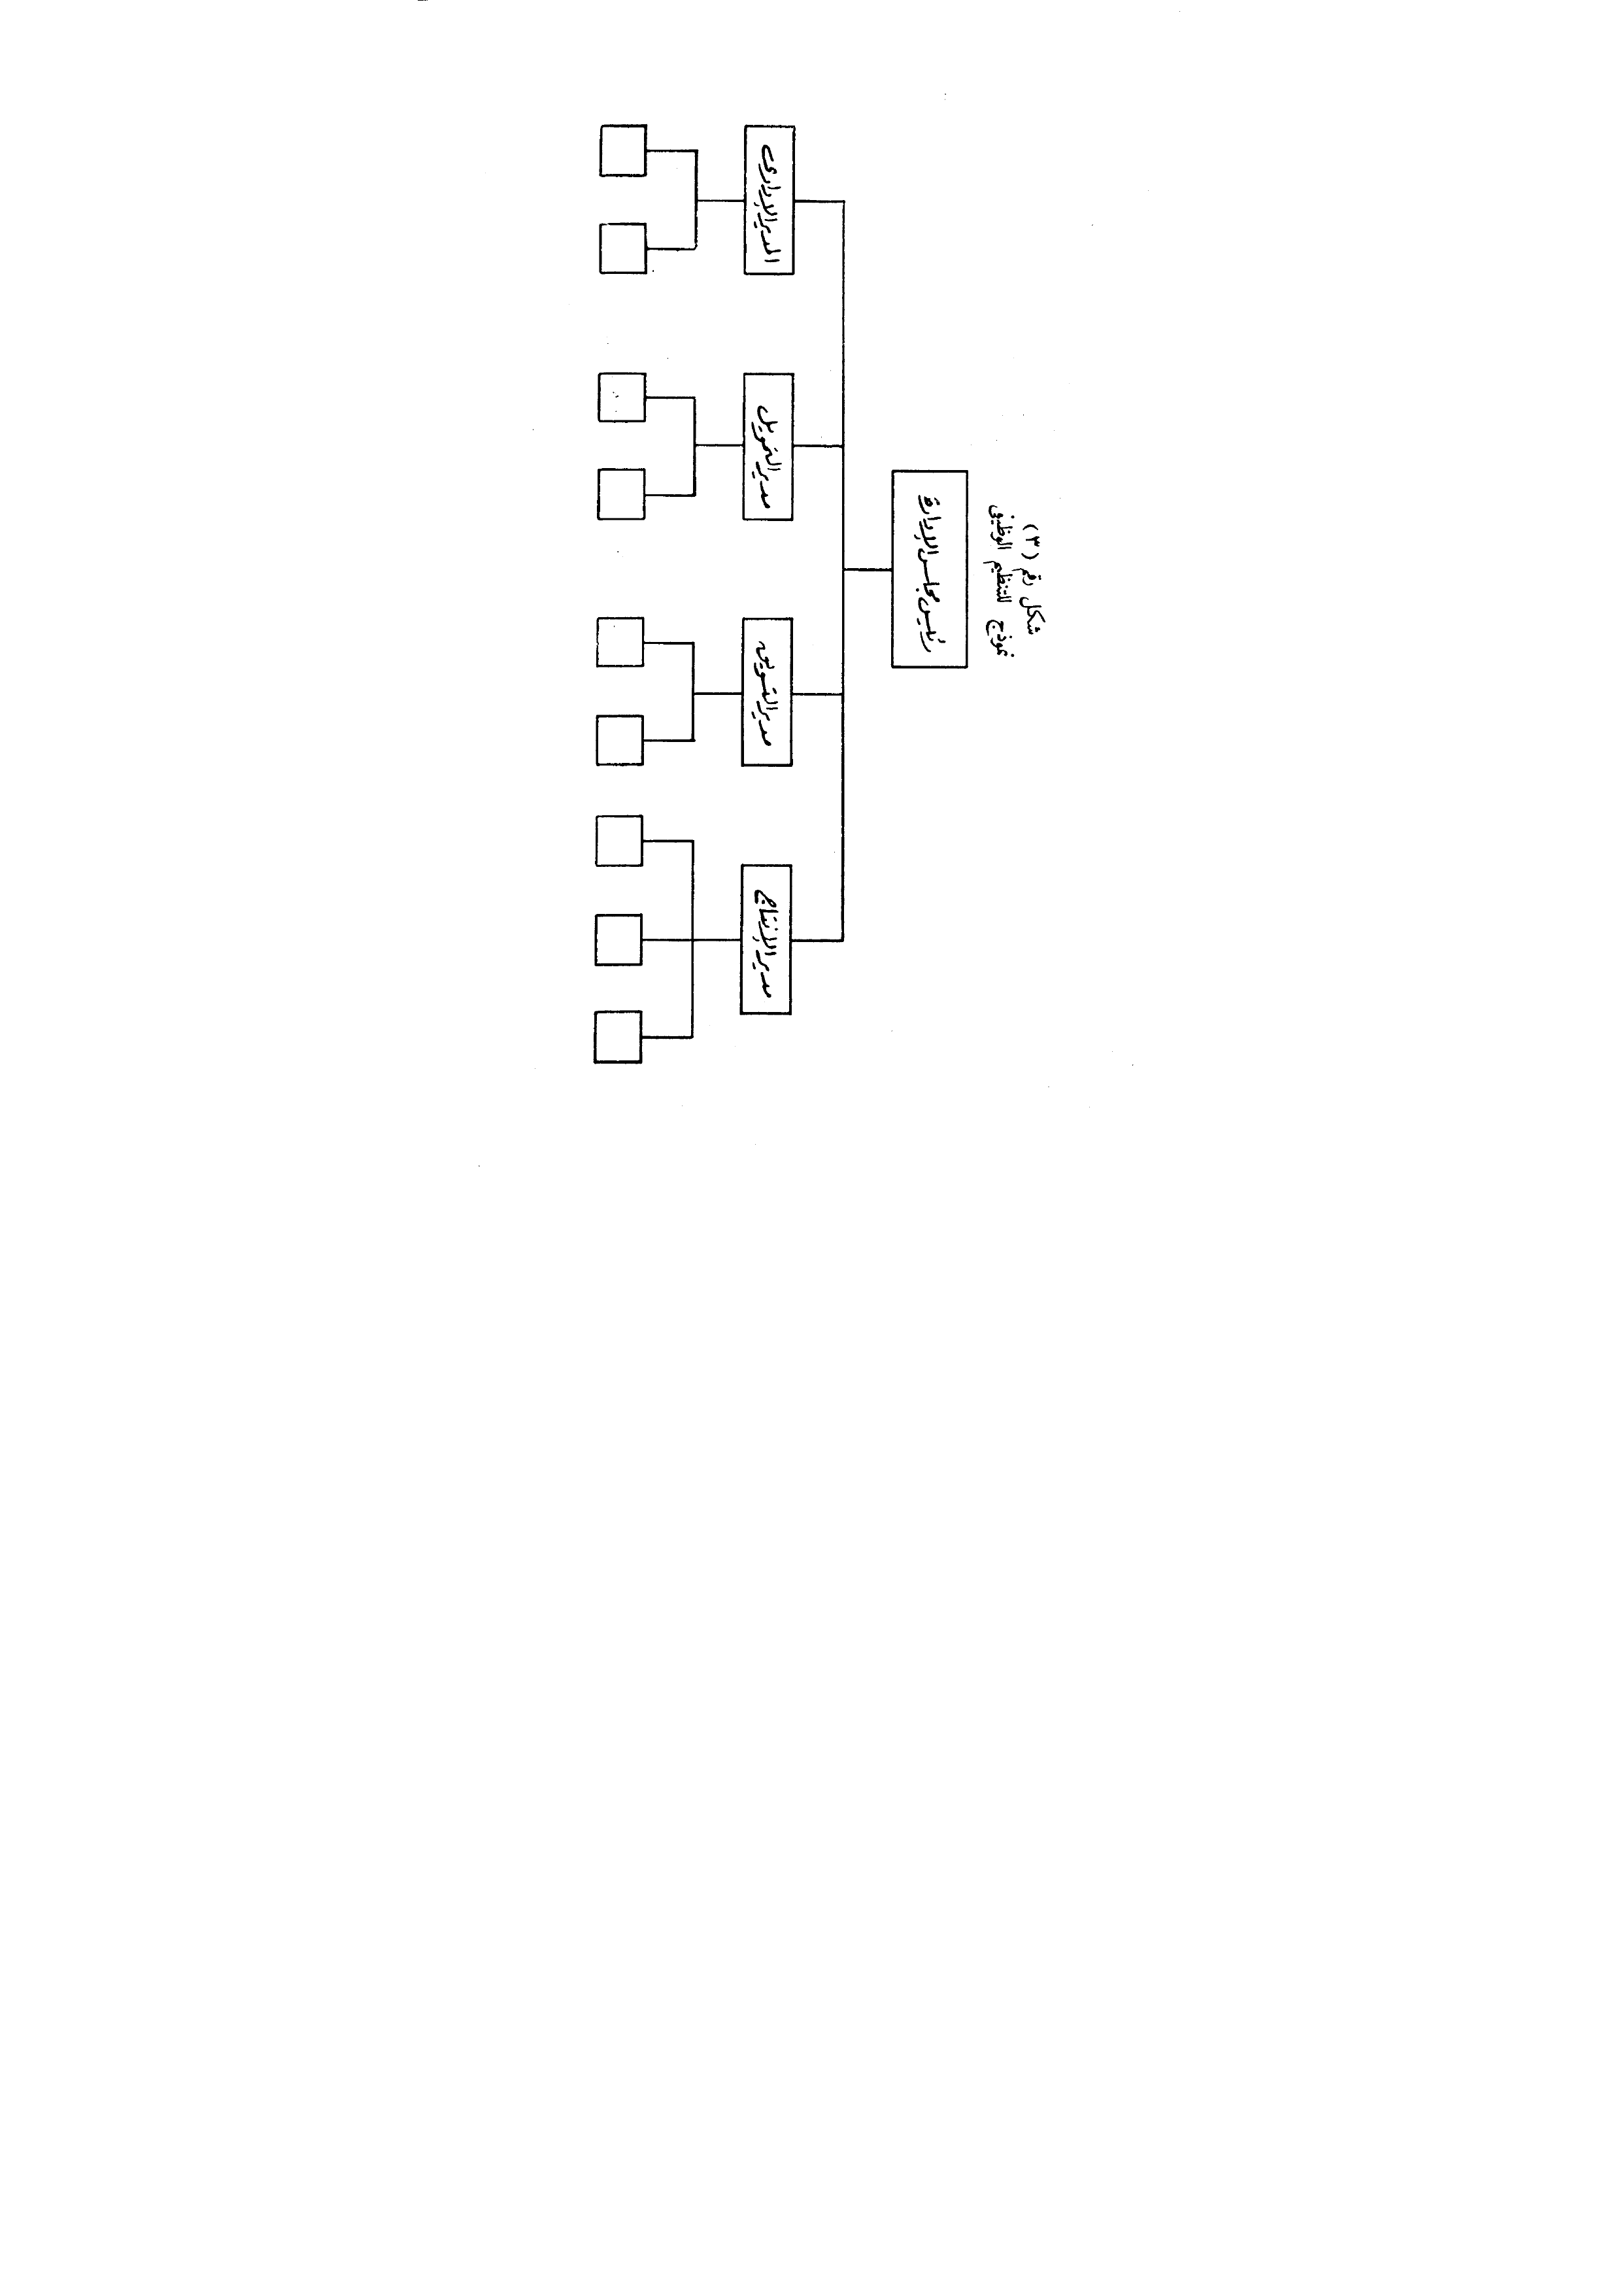 شكل رقم (٣)
نموذج للتنظيم الوظيفى
رئيس مجلس الإدارة
مدير الإنتاج
مدير التسويق
مدير التمويل
المدير الإدارى